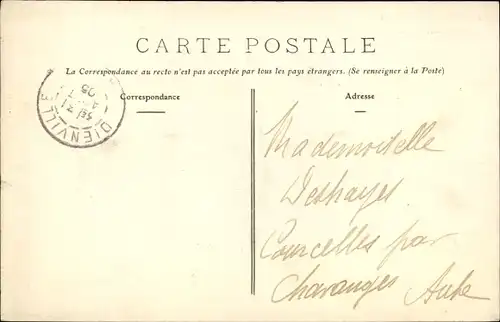 CARTE POSTALE
La Correspondance au recto n'est pas acceptée par tous les pays étrangers. (Se renseigner à la Poste)
Correspondance
Adresse
DIENVILLE
05
Mademoiselle
Deshayes
Courcelles par
Chavanges Aube